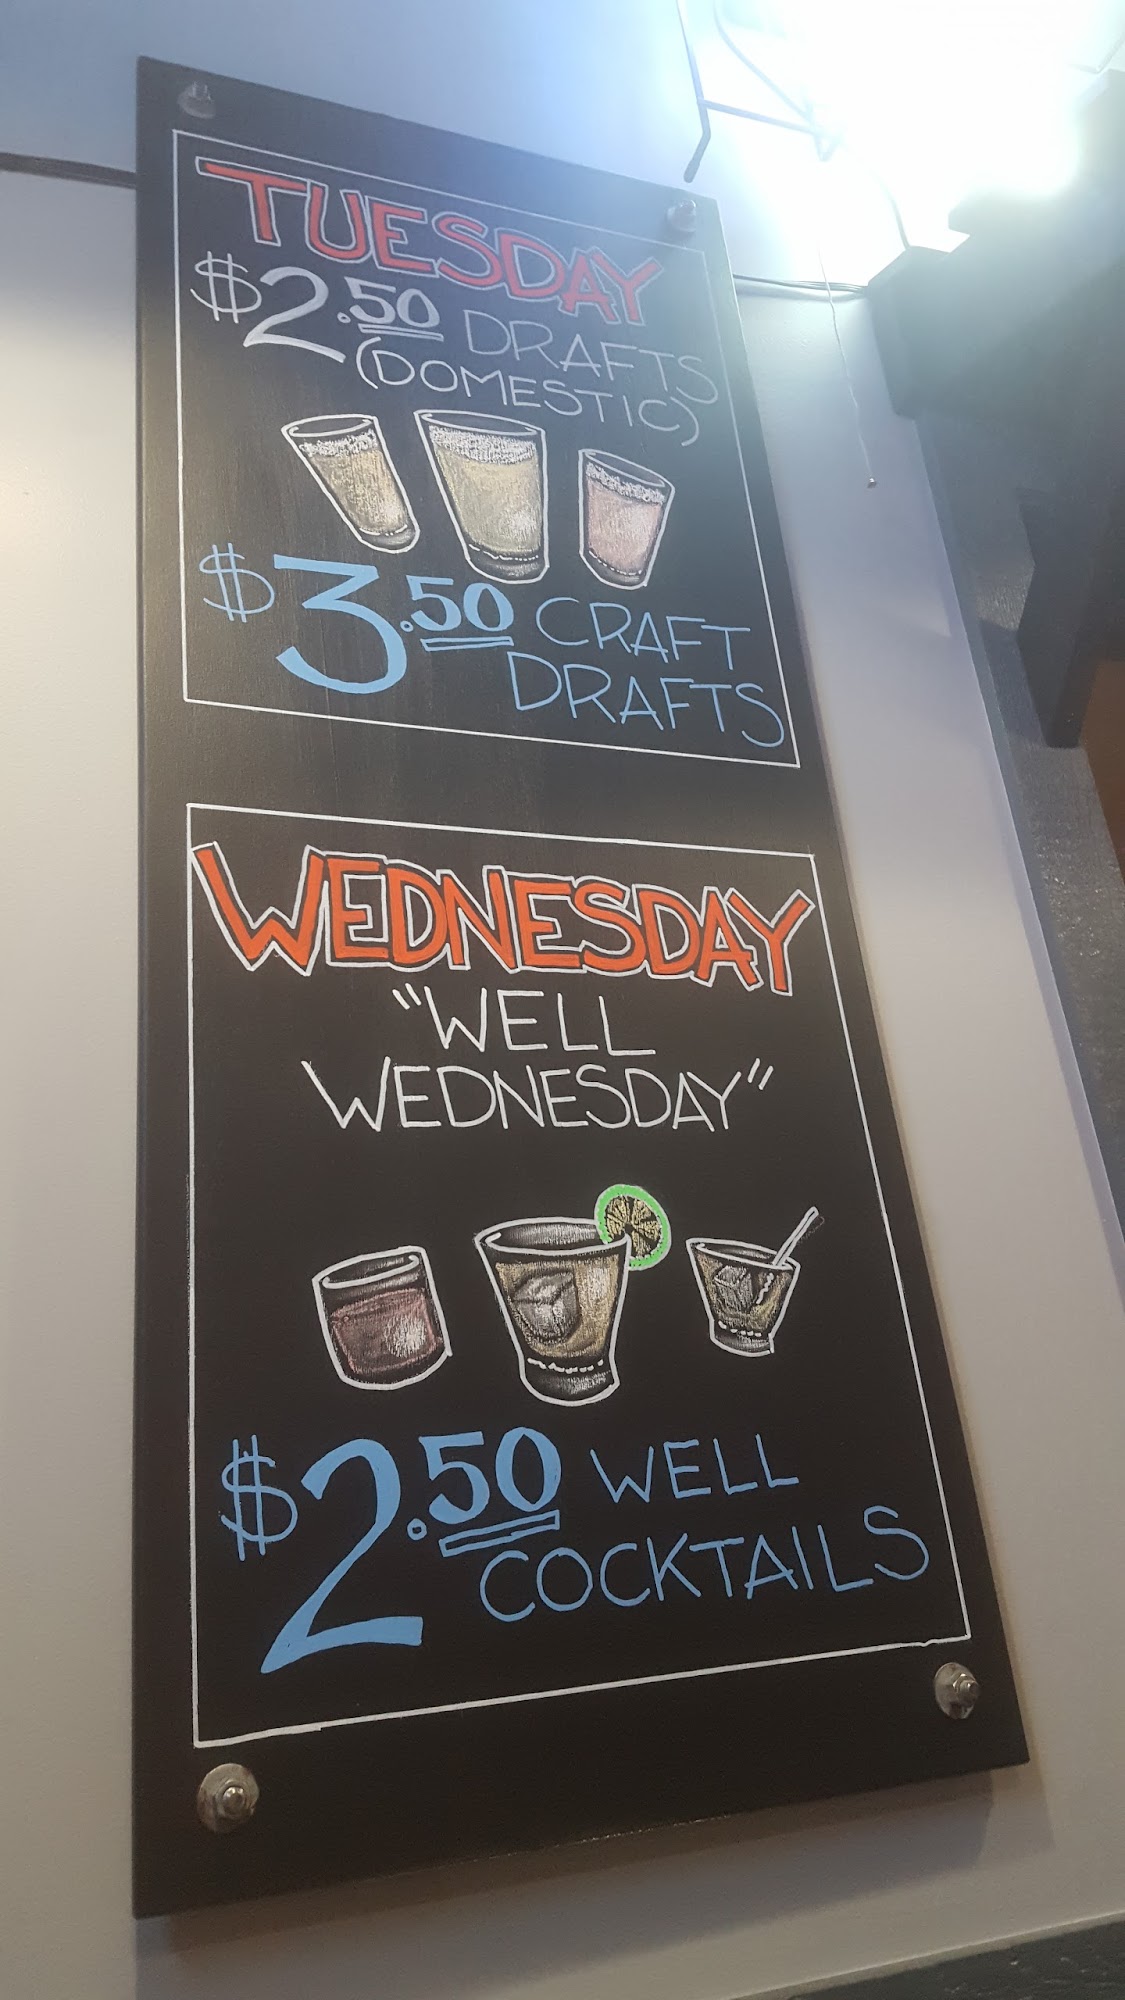 TUESDAY
$2.50 DRAFTS
(DOMESTIC)
$3.50 CRAFT
DRAFTS
WEDNESDAY
"WELL
WEDNESDAY"
$2.50 WELL
COCKTAILS